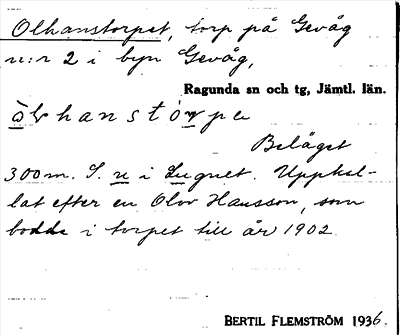 Olhanstorpet, torp på Gevåg
n:r 2 i byn Gevåg,
Ragunda sn och tg, Jämtl. län.
Beläget
300 m. S. n i Lugnet. Uppkal-
lat efter en Olov Hansson, som
bodde i torpet till år 1902.
BERTIL FLEMSTRÖM 1936.